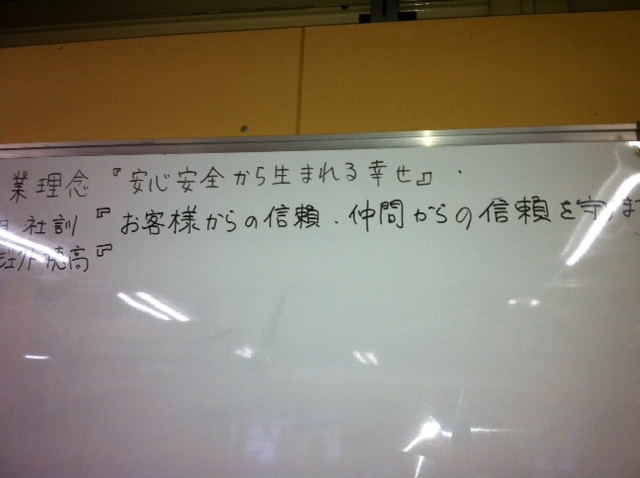 業理念『安心安全から生まれる幸せ』.
社訓『お客様からの信頼.仲間からの信頼を守りま
高『